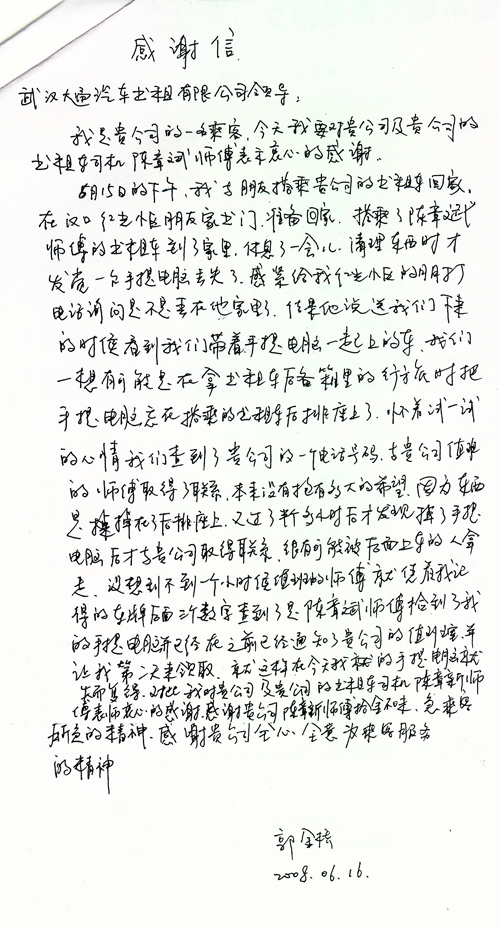 感谢信
武汉大通汽车出租有限公司领导：
我是贵公司的一名乘客，今天我要对贵公司及贵公司的
出租车司机陈章斌师傅表示衷心的感谢。
6月15日的下午，我与朋友搭乘贵公司的出租车回家，
在汉口红光小区朋友家出门，准备回家，搭乘了陈章斌
师傅的出租车到了家里，休息了一会儿，清理东西时才
发觉一台手提电脑丢失了，感觉给我红光小区的朋友打
电话询问是不是丢在他家里了，结果他说送我们下来
的时候看到我们带着手提电脑一起上的车，我们
一想有可能是在拿出租车后备箱里的行李时把
手提电脑忘在搭乘的出租车后排座上了，怀着试一试
的心情我们查到了贵公司的一个电话号码，与贵公司值班
的师傅取得了联系，本来没有抱有多大的希望，因为东西
是掉在后排座上，又过了半个多小时后才发现掉了手提
电脑后才与贵公司取得联系，很有可能被后面上车的人拿
走，没想到不到一个小时值班的师傅就凭着我记
得的车牌后面三个数字查到了是陈章斌师傅捡到了我
的手提电脑并已经在之前已经通知了贵公司的值班室，并
让我第二天来领取，就这样在今天我的手提电脑就
失而复得，对此我对贵公司及贵公司的出租车司机陈章斌师
傅表示衷心的感谢，感谢贵公司陈章斌师傅拾金不昧，急乘客
所急的精神，感谢贵公司全心全意为乘客服务
的精神
郭金
2008.06.16.